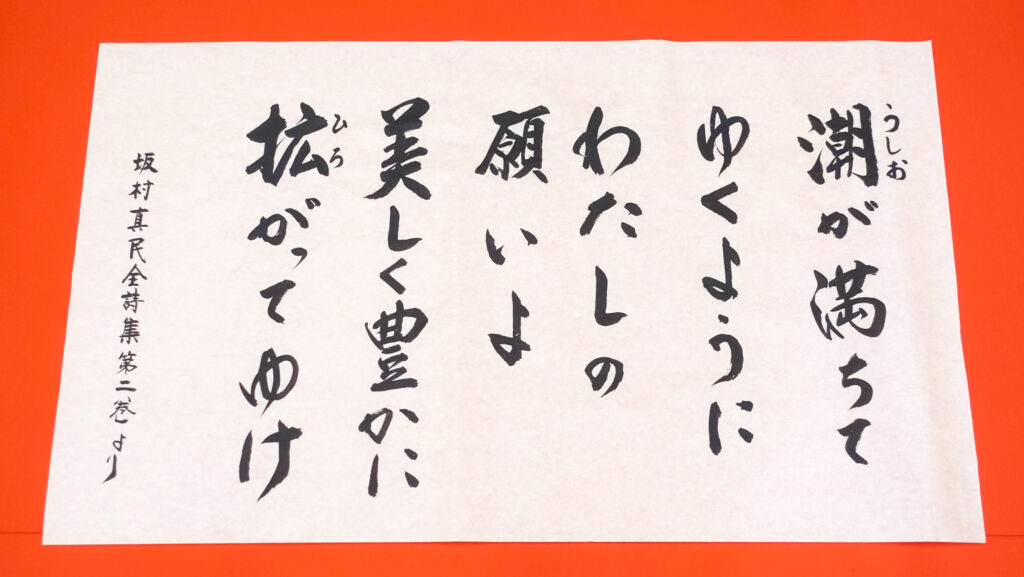 潮が満ちて
うしお
ゆくように
わたしの
願いよ
美しく豊かに
拡がってゆけ
ひろ
坂村真民全詩集第二巻より